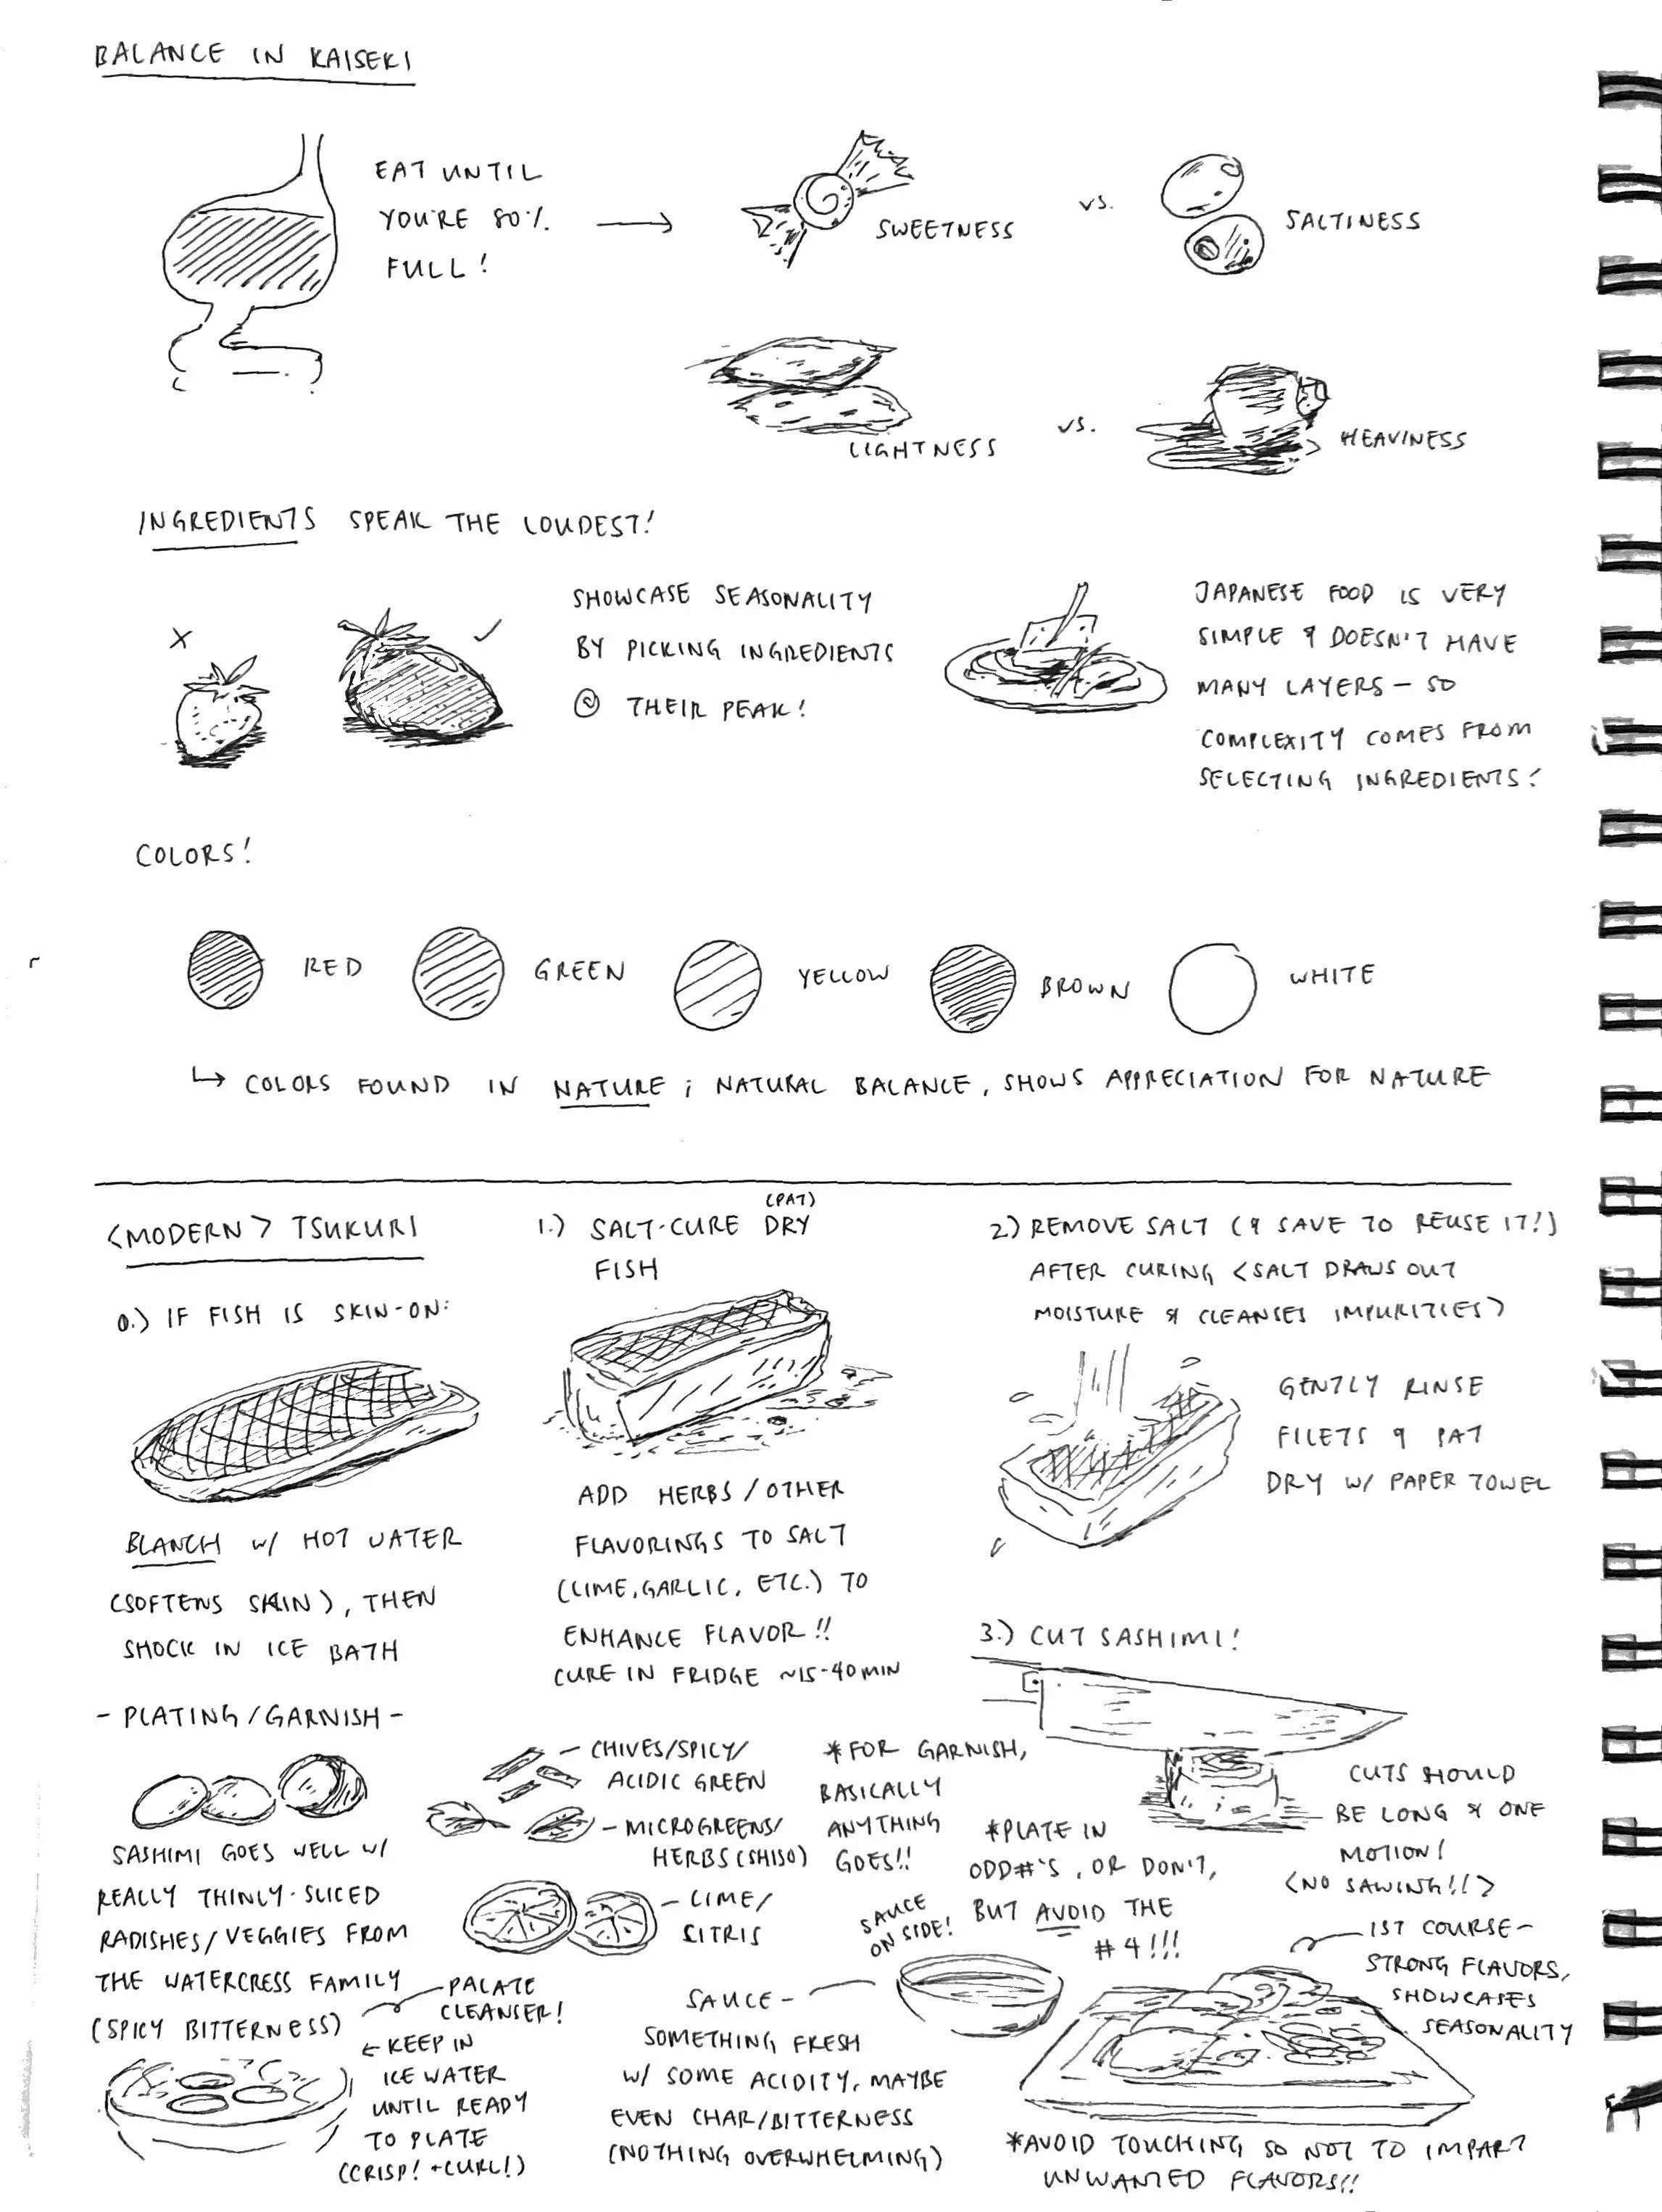 BALANCE IN KAISEKI
EAT UNTIL
YOU'RE 80%
FULL!
SWEETNESS
vs.
SALTINESS
LIGHTNESS
vs.
HEAVINESS
INGREDIENTS SPEAK THE LOUDEST!
SHOWCASE SEASONALITY
BY PICKING INGREDIENTS
@ THEIR PEAK!
JAPANESE FOOD IS VERY
SIMPLE & DOESN'T HAVE
MANY LAYERS - SO
COMPLEXITY COMES FROM
SELECTING INGREDIENTS!
COLORS!
RED
GREEN
YELLOW
BROWN
WHITE
↳ COLORS FOUND IN NATURE; NATURAL BALANCE, SHOWS APPRECIATION FOR NATURE
<MODERN> TSUKURI
0.) IF FISH IS SKIN-ON:
BLANCH w/ HOT WATER
(SOFTENS SKIN), THEN
SHOCK IN ICE BATH
1.) SALT-CURE (PAT) DRY
FISH
ADD HERBS/OTHER
FLAVORINGS TO SALT
(LIME, GARLIC, ETC.) TO
ENHANCE FLAVOR!!
CURE IN FRIDGE ~15-40 MIN
2.) REMOVE SALT (& SAVE TO REUSE IT!)
AFTER CURING <SALT DRAWS OUT
MOISTURE & CLEANSES IMPURITIES>
GENTLY RINSE
FILETS & PAT
DRY w/ PAPER TOWEL
3.) CUT SASHIMI!
CUTS SHOULD
BE LONG & ONE
MOTION!
<NO SAWING!!>
- PLATING/GARNISH -
SASHIMI GOES WELL w/
REALLY THINLY-SLICED
RADISHES/VEGGIES FROM
THE WATERCRESS FAMILY
(SPICY BITTERNESS)
PALATE
CLEANSER!
← KEEP IN
ICE WATER
UNTIL READY
TO PLATE
(CRISP! + CURL!)
- CHIVES/SPICY/
ACIDIC GREEN
- MICROGREENS/
HERBS (SHISO)
- LIME/
CITRIS
*FOR GARNISH,
BASICALLY
ANYTHING
GOES!!
SAUCE
ON SIDE!
SAUCE -
SOMETHING FRESH
w/ SOME ACIDITY, MAYBE
EVEN CHAR/BITTERNESS
(NOTHING OVERWHELMING)
*PLATE IN
ODD #'S, OR DON'T,
BUT AVOID THE
#4!!!
1ST COURSE -
STRONG FLAVORS,
SHOWCASES
SEASONALITY
*AVOID TOUCHING SO NOT TO IMPART
UNWANTED FLAVORS!!